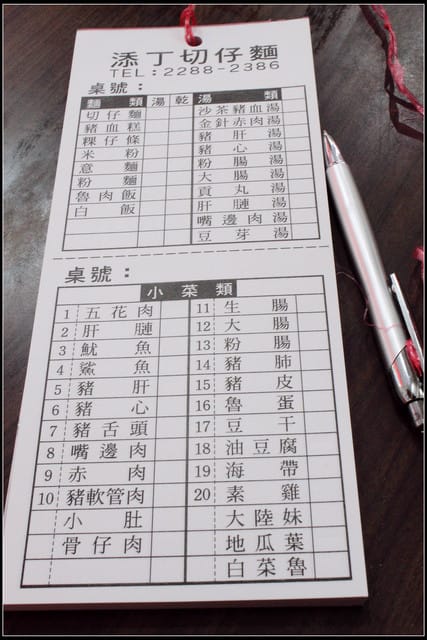 添丁切仔麵
TEL:2288-2386
桌號:
麵類 湯 乾 湯類
切仔麵 沙茶豬血湯
豬血糕 金針赤肉湯
粿仔條 豬肝湯
米粉 豬心湯
意麵 粉腸湯
粉麵 大腸湯
魯肉飯 貢丸湯
白飯 肝臁湯
嘴邊肉湯
豆芽湯
桌號:
小菜類
1 五花肉 11 生腸
2 肝臁 12 大腸
3 魷魚 13 粉腸
4 鯊魚 14 豬肺
5 豬肝 15 豬皮
6 豬心 16 魯蛋
7 豬舌頭 17 豆干
8 嘴邊肉 18 油豆腐
9 赤肉 19 海帶
10 豬軟管肉 20 素雞
小肚 大陸妹
骨仔肉 地瓜葉
白菜魯